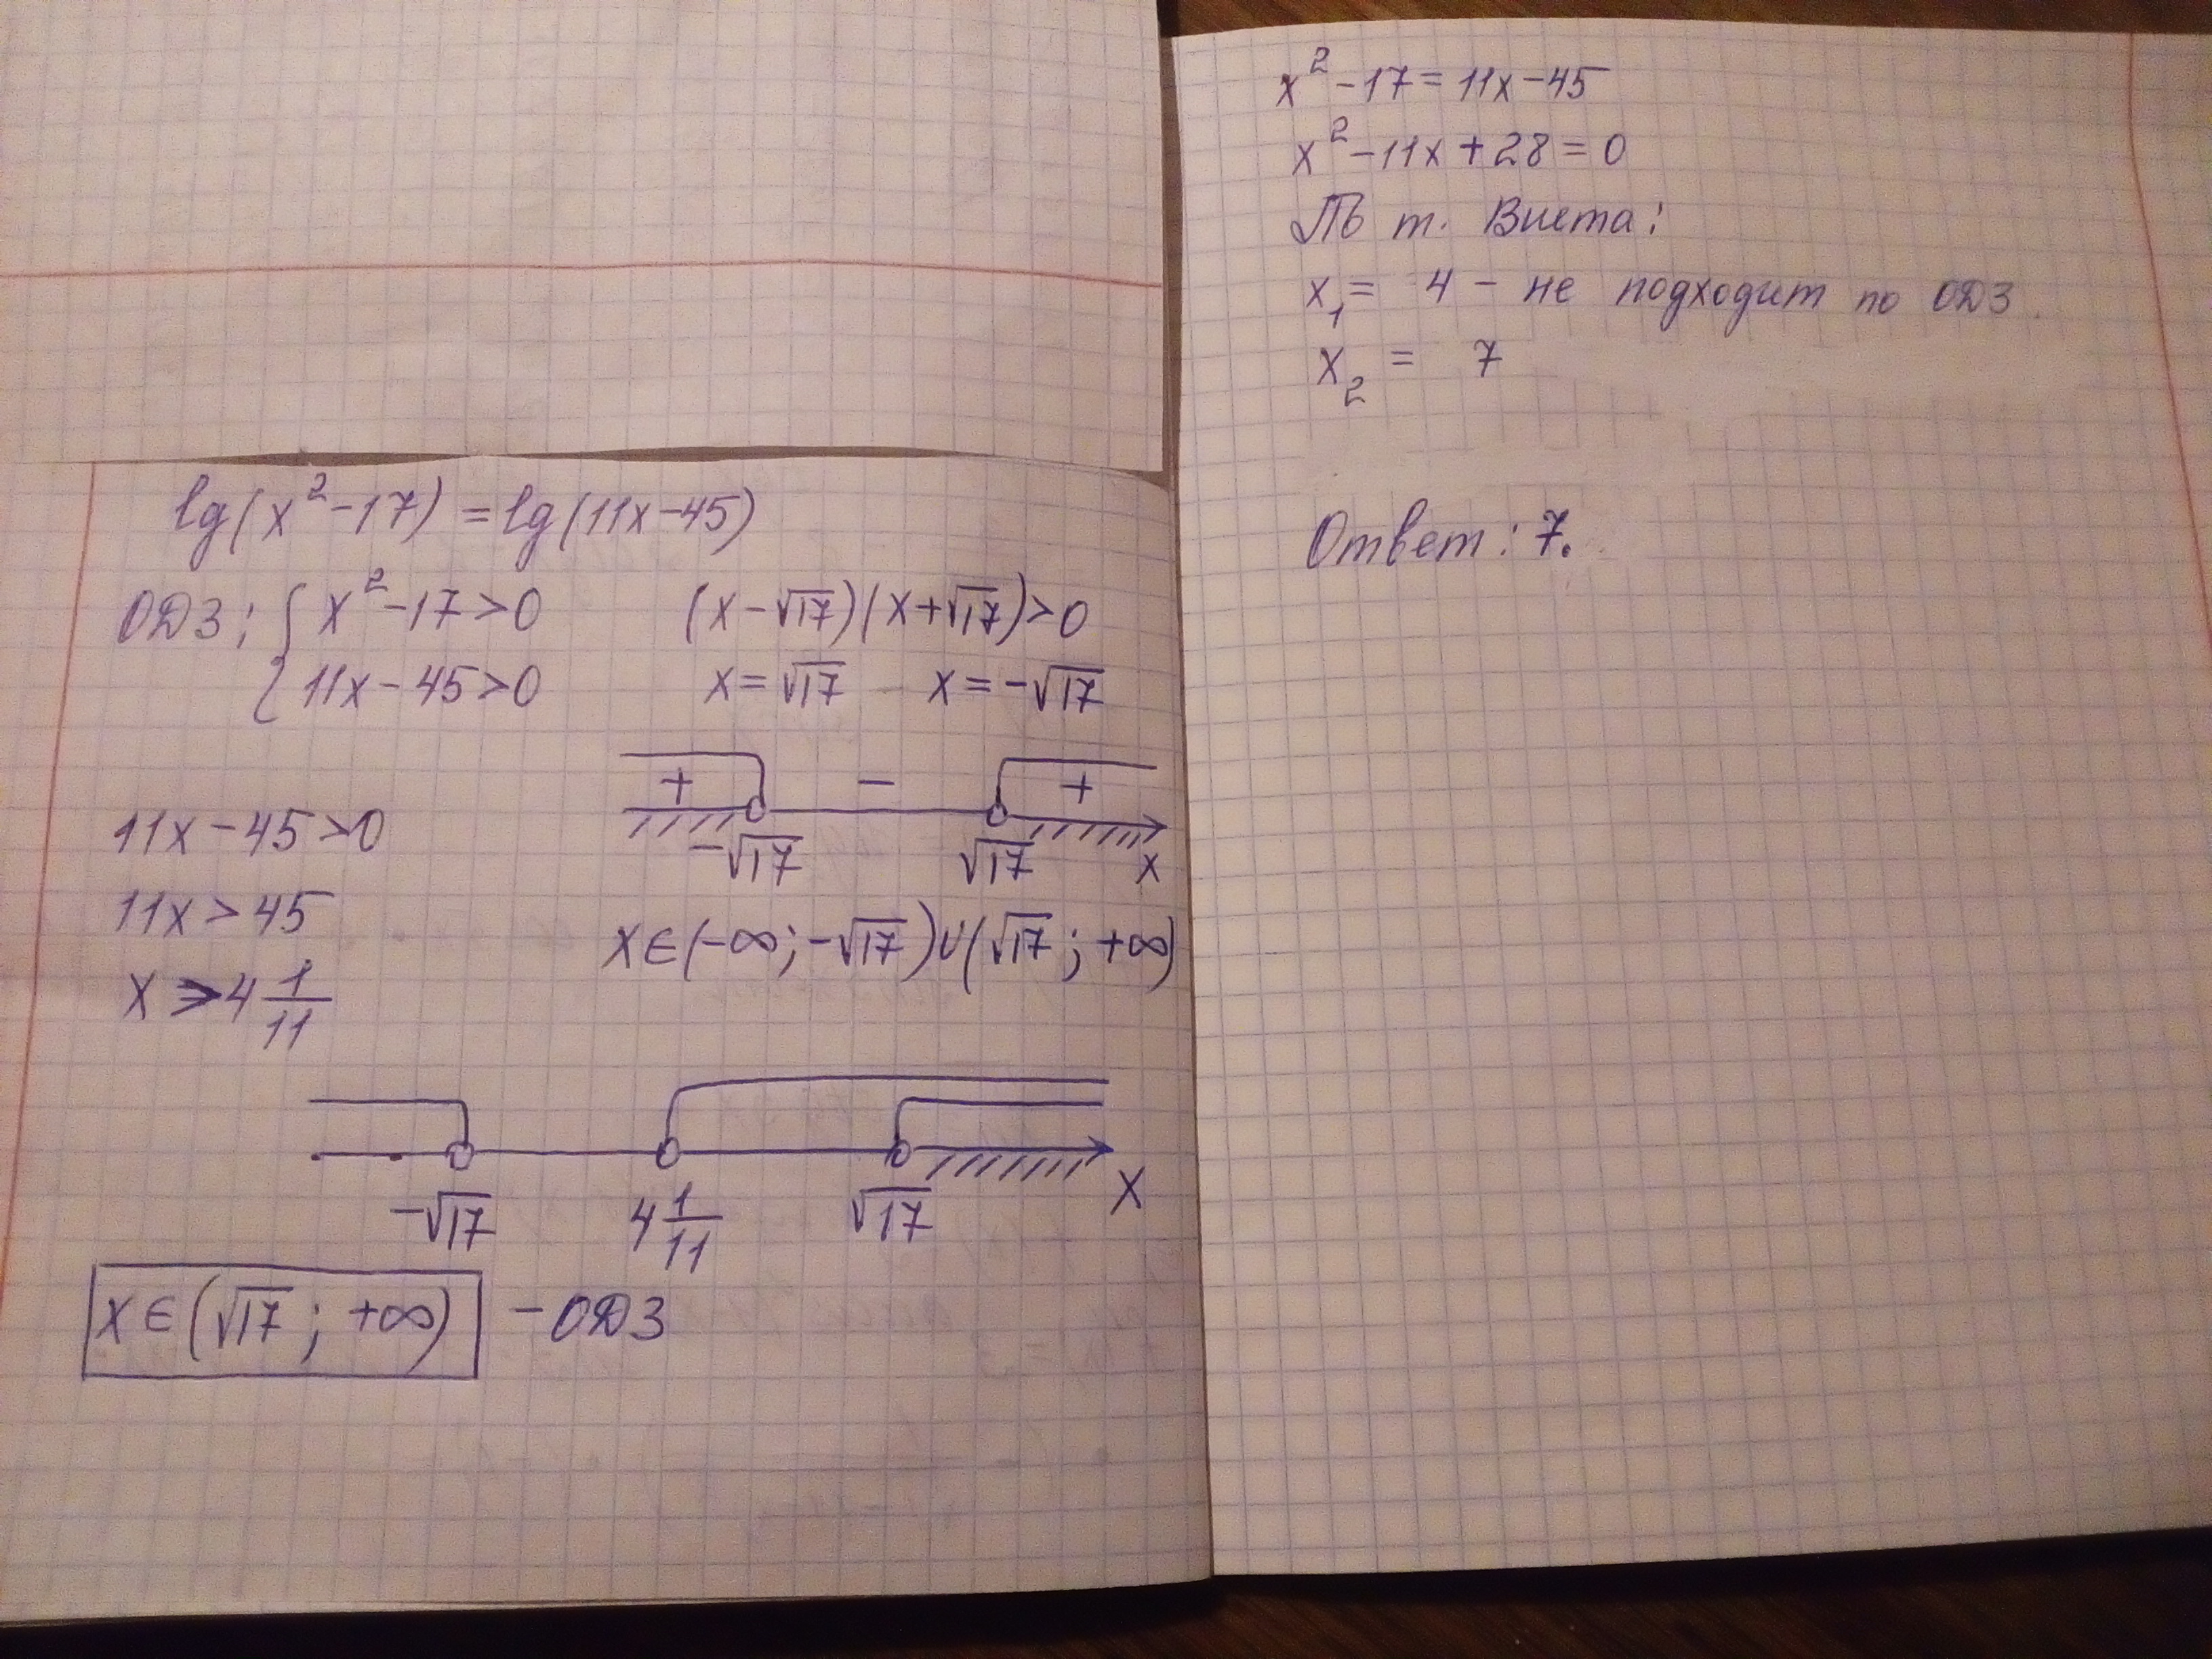 lg(x²-17)=lg(11x-45)
ОДЗ: { x²-17>0 (x-√17)(x+√17)>0
11x-45>0 x=√17 x=-√17
+ - +
-√17 √17 x
11x-45>0
11x>45 x∈(-∞;-√17)∪(√17;+∞)
x>4 1/11
-√17 4 1/11 √17 x
x∈(√17;+∞) - ОДЗ
x²-17=11x-45
x²-11x+28=0
По т. Виета:
x₁= 4 - не подходит по ОДЗ.
x₂ = 7
Ответ: 7.